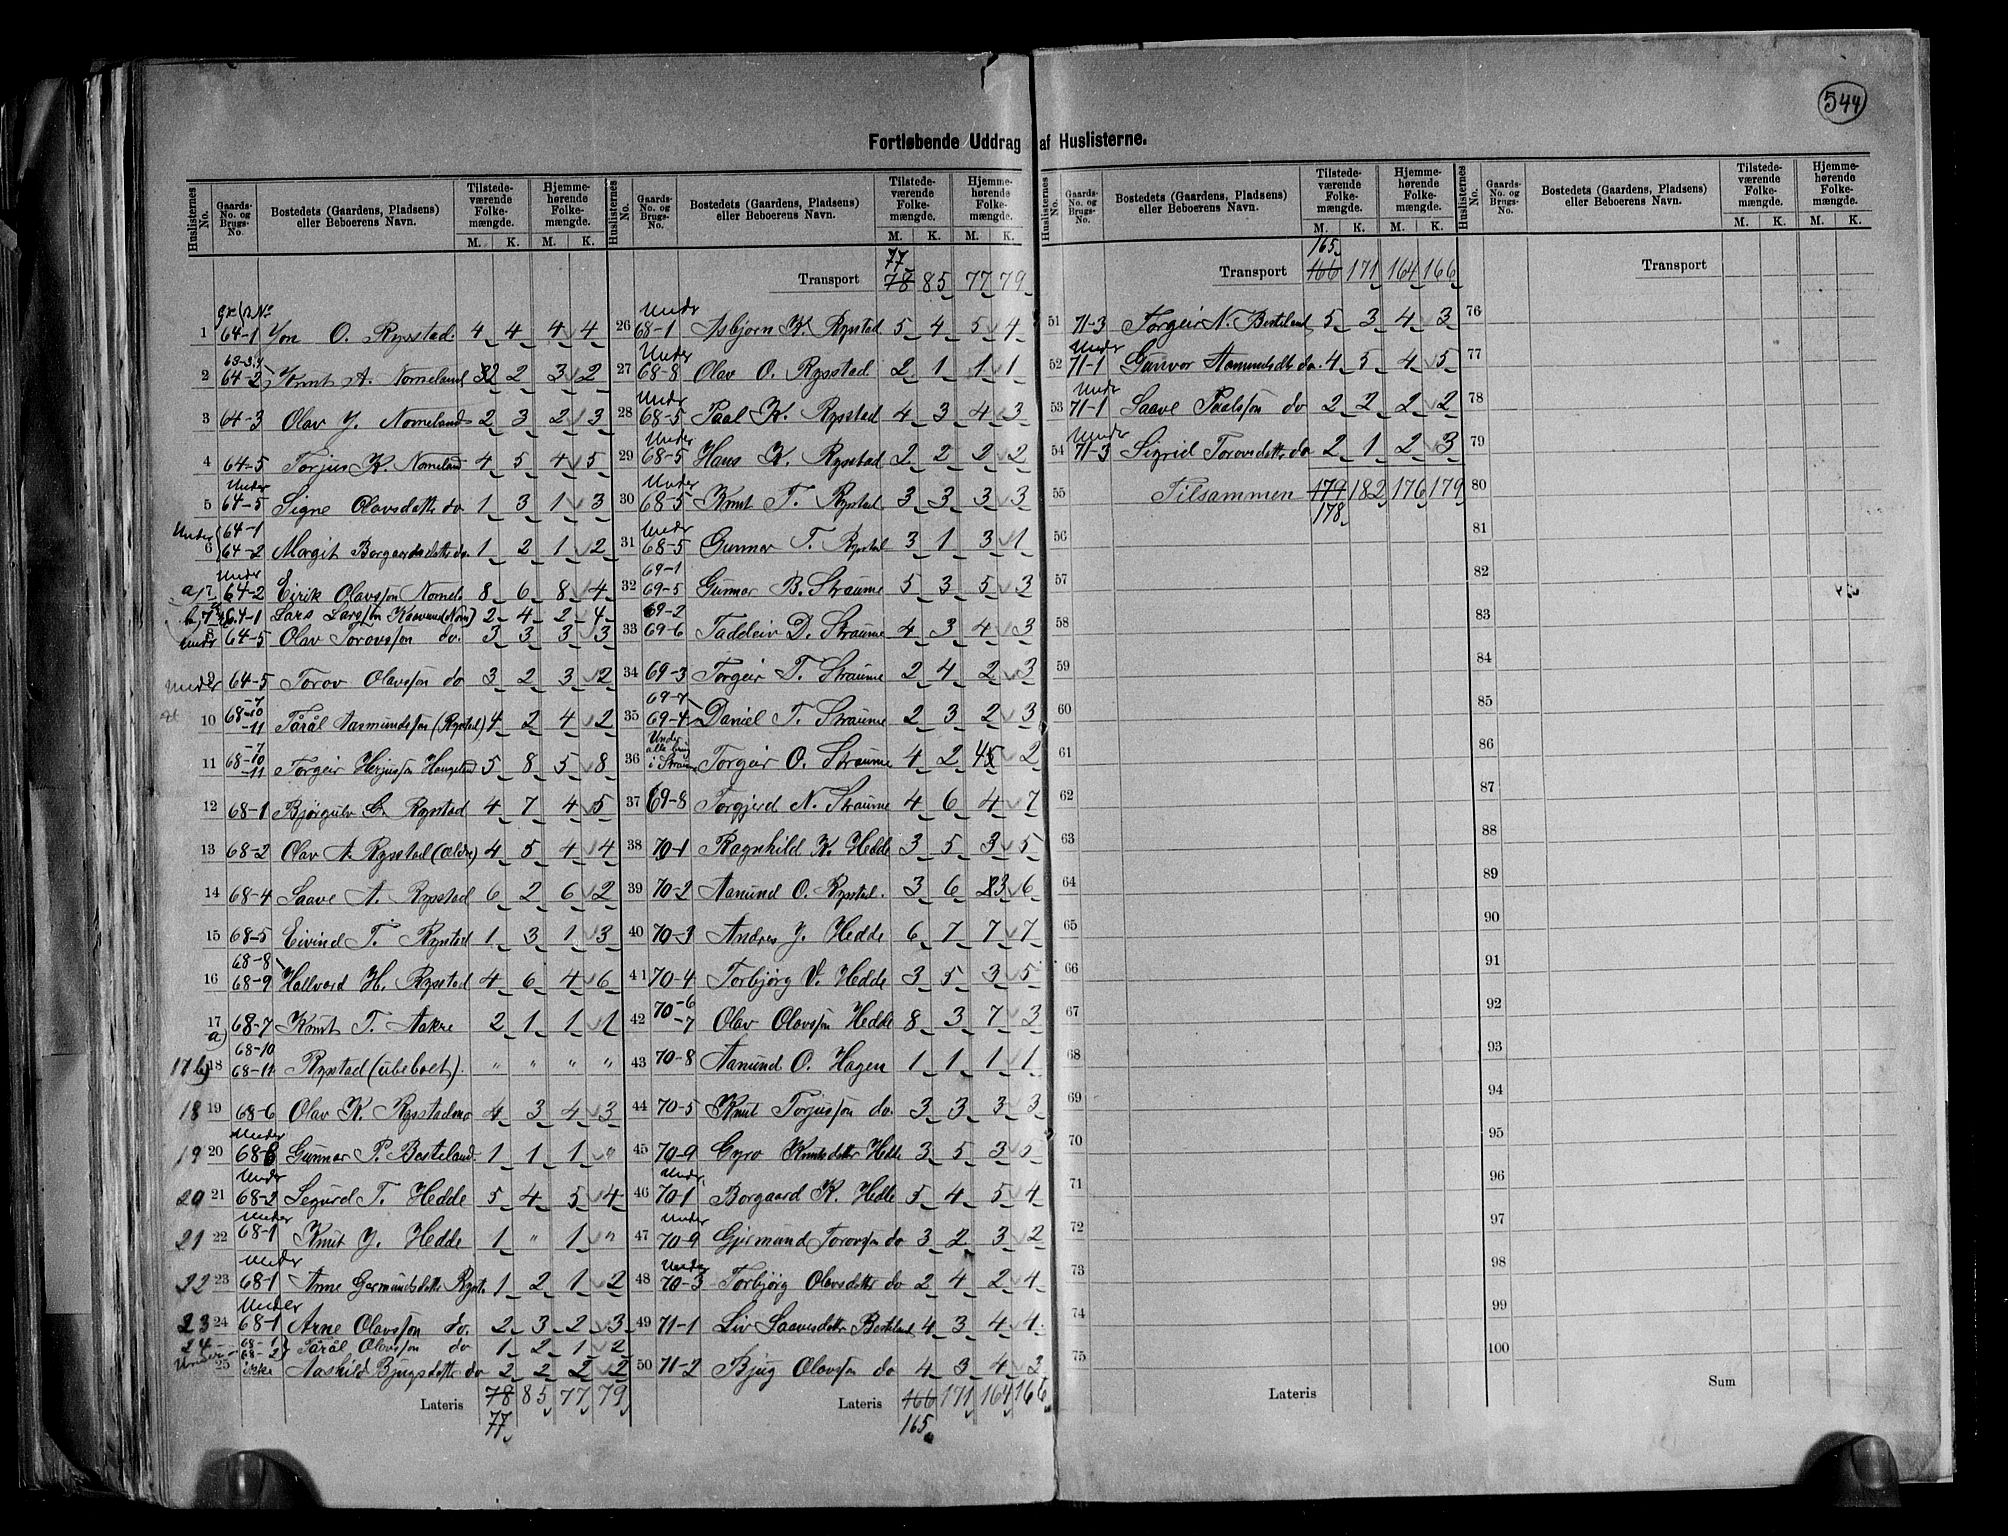 544
Fortløbende Uddrag af Huslisterne.
Huslisternes No. Gaards-No. og Brugs-No. Bostedets (Gaardens, Pladsens) eller Beboerens Navn. Tilstede-værende Folke-mængde. Hjemme-hørende Folke-mængde. M. K. M. K.
1 64-1 Jon O. Rysstad. 4 4 4 4
2 68-3,4 64-2 Knut A. Nomeland 2 2 3 2
3 64-3 Olav J. Nomeland 2 3 2 3
4 64-5 Torjus K. Nomeland 4 5 4 5
5 Under 64-5 Signe Olavsdatter do 1 3 1 3
Under 6 64-1 64-2 Margit Borgaardsdatter do. 1 2 1 2
a, 7 Under 64-2 Eirik Olavsson Nomel. 8 6 8 4
b, 7 64-1 Lars Larsson 2 4 2 4
Under 8 64-5 Olav Torovsson do. 3 3 3 3
Under 9 64-5 Torov Olavsson do 3 2 3 2
10 68-7 -10 -11 Tårål Aasmundsson (Rysstad) 4 2 4 2
11 68-7 -10 -11 Torgeir Herjusson Haugeland 5 8 5 8
12 68-1 Bjørgulv G. Rysstad 4 7 4 5
13 68-2 Olav A. Rysstad (ældre) 4 5 4 4
14 68-4 Saave A. Rysstad 6 2 6 2
15 68-5 Eivind T. Rysstad 1 3 1 3
16 68-8 68-9 Hallvard H. Rysstad 4 6 4 6
17 a) 68-7 Knut T. Aakre 2 1 1 1
17 b) 18 68-10 68-11 Rysstad (ubeboet). " " " "
18 19 68-6 Olav K. Rysstadmo 4 3 4 3
19 20 Under 68-8 Gunnar P. Besteland. 1 1 1 "
20 21 Under 68-2 Segurd T. Hedde 5 4 5 4
21 22 Under 68-1 Knut J. Hedde 1 " 1 "
22 23 Under 68-1 Anne Germundsdatter Ryst. 1 2 1 2
23 24 Under 68-1 Arne Olavsson do. 2 3 2 3
24 Under 68-1 68-2 Tårål Olavsson do 1 2 1 2
25 ikke Aashild Bjugsdatter do 2 2 2 2
Lateris 78 85 77 79
77
Huslisternes No. Gaards-No. og Brugs-No. Bostedets (Gaardens, Pladsens) eller Beboerens Navn. Tilstede-værende Folke-mængde. Hjemme-hørende Folke-mængde. M. K. M. K.
77
Transport 78 85 77 79
26 Under 68-1 Asbjørn K. Rysstad 5 4 5 4
27 Under 68-8 Olav O. Rysstad 2 1 1 1
28 Under 68-5 Paal K. Rysstad 4 3 4 3
29 Under 68-5 Hans K. Rysstad 2 2 2 2
30 Under 68-5 Knut T. Rysstad 3 3 3 3
31 Under 68-5 Gunnar T. Rysstad 3 1 3 1
32 69-1 69-5 Gunnar B. Straume 5 3 5 3
33 69-2 69-6 Taddeiv D. Straume 4 3 4 3
34 69-3 Torgeir T. Straume 2 4 2 3
35 69-7 69-4 Daniel T. Straume 2 3 2 3
36 Under alle brug i Straume Torgeir O. Straume 4 2 4 2
37 69-8 Torgjerd N. Straume 4 6 4 7
38 70-1 Ragnhild K. Hedde 3 5 3 5
39 70-2 Aanund O. Rysstad. 3 6 3 6
40 70-3 Andres J. Hedde 6 7 7 7
41 70-4 Torbjørg V. Hedde 3 5 3 5
42 70-6 -7 Olav Olavsson Hedde 8 3 7 3
43 70-8 Aanund O. Hagen 1 1 1 1
44 70-5 Knut Torjusson do. 3 3 3 3
45 70-9 Gyro Knutsdatter Hedde 3 5 3 5
46 Under 70-1 Borgaard K. Hedde 5 4 5 4
47 Under 70-9 Gjermund Torovsson do 3 2 3 2
48 Under 70-3 Torbjørg Olavsdatter do 2 4 2 4
49 71-1 Liv Saavesdatter Besteland 4 3 4 4
50 71-2 Bjug Olavsson do 4 3 4 3
Lateris 166 171 164 166
165
Huslisternes No. Gaards-No. og Brugs-No. Bostedets (Gaardens, Pladsens) eller Beboerens Navn. Tilstede-værende Folke-mængde. Hjemme-hørende Folke-mængde. M. K. M. K.
165
Transport 166 171 164 166
51 71-3 Torgeir N. Besteland 5 3 4 3
52 Under 71-1 Gunvor Aamundsdtr do. 4 5 4 5
53 Under 71-1 Saave Paalsson do 2 2 2 2
54 Under 71-3 Sigrid Torovsdatter do 2 1 2 3
55 Tilsammen 179 182 176 179
178
56
57
58
59
60
61
62
63
64
65
66
67
68
69
70
71
72
73
74
75
Lateris
Huslisternes No. Gaards-No. og Brugs-No. Bostedets (Gaardens, Pladsens) eller Beboerens Navn. Tilstede-værende Folke-mængde. Hjemme-hørende Folke-mængde. M. K. M. K.
Transport
76
77
78
79
80
81
82
83
84
85
86
87
88
89
90
91
92
93
94
95
96
97
98
99
100
Sum